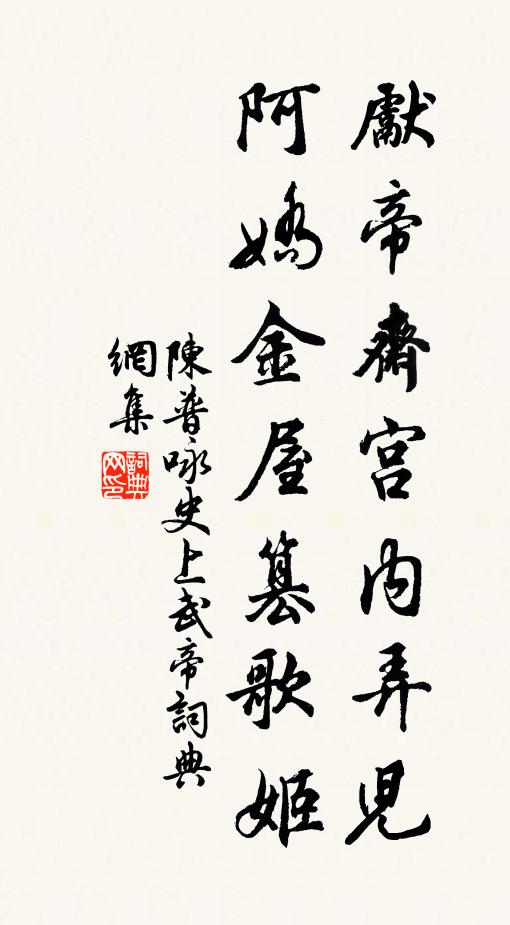 獻帝齋宮內弄兒
阿嬌金屋篡歌姬
陳普咏史上武帝詞典
網集
詞典
网印